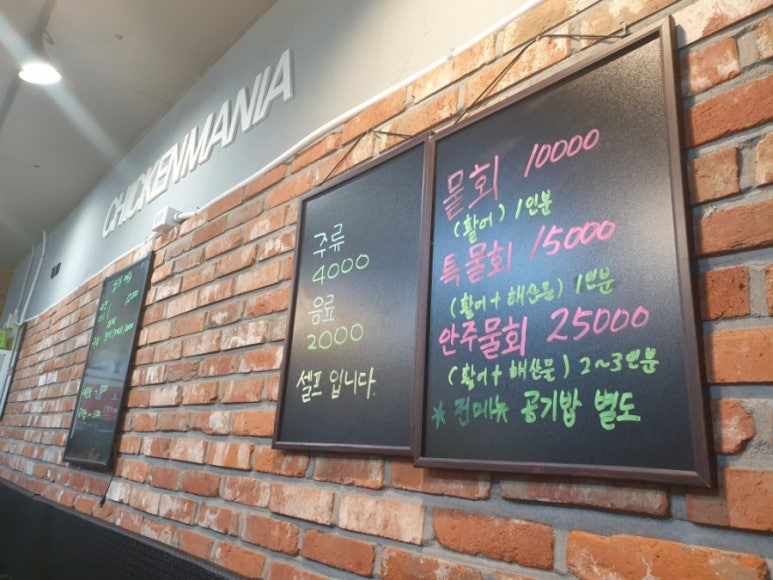 CHICKENMANIA
주류
4000
음료
2000
셀프 입니다.
물회 10000
(활어) 1인분
특물회 15000
(활어+해산물) 1인분
안주물회 25000
(활어+해산물) 2~3인분
※ 전메뉴 공기밥 별도